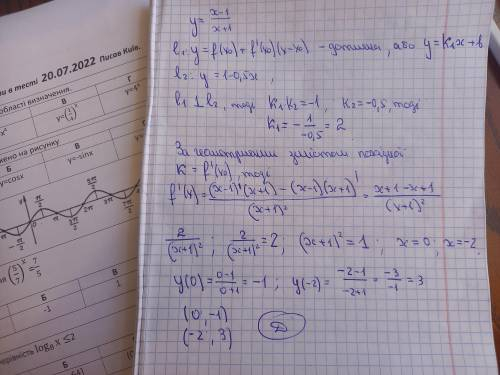 и в тесті 20.07.2022 Писав Київ.
області визначення.
В
Г
y=4ˣ
жено на рисунку
Б
В
y=cosx
y=-sinx
-π/2
0
π/2
π
3π/2
2π
5π/2
3π
Б
В
-1
1
нерівність log₈ x ≤ 2
Б
y = (x-1)/(x+1)
l₁: y = f(x₀) + f'(x₀)(x-x₀) - дотична, або y=k₁x+b
l₂: y = 1-0,5x,
l₁ ⊥ l₂, тоді k₁k₂=-1, k₂=-0,5, тоді
k₁ = -1/(-0,5) = 2
За геометричним змістом похідної
k = f'(x₀), тоді
f'(x) = ((x-1)'(x+1) - (x-1)(x+1)')/(x+1)² = (x+1-x+1)/(x+1)²
2/(x+1)²; 2/(x+1)² = 2, (x+1)² = 1; x=0, x=-2
y(0) = (0-1)/(0+1) = -1; y(-2) = (-2-1)/(-2+1) = -3/-1 = 3
(0, -1)
(-2, 3)
Д